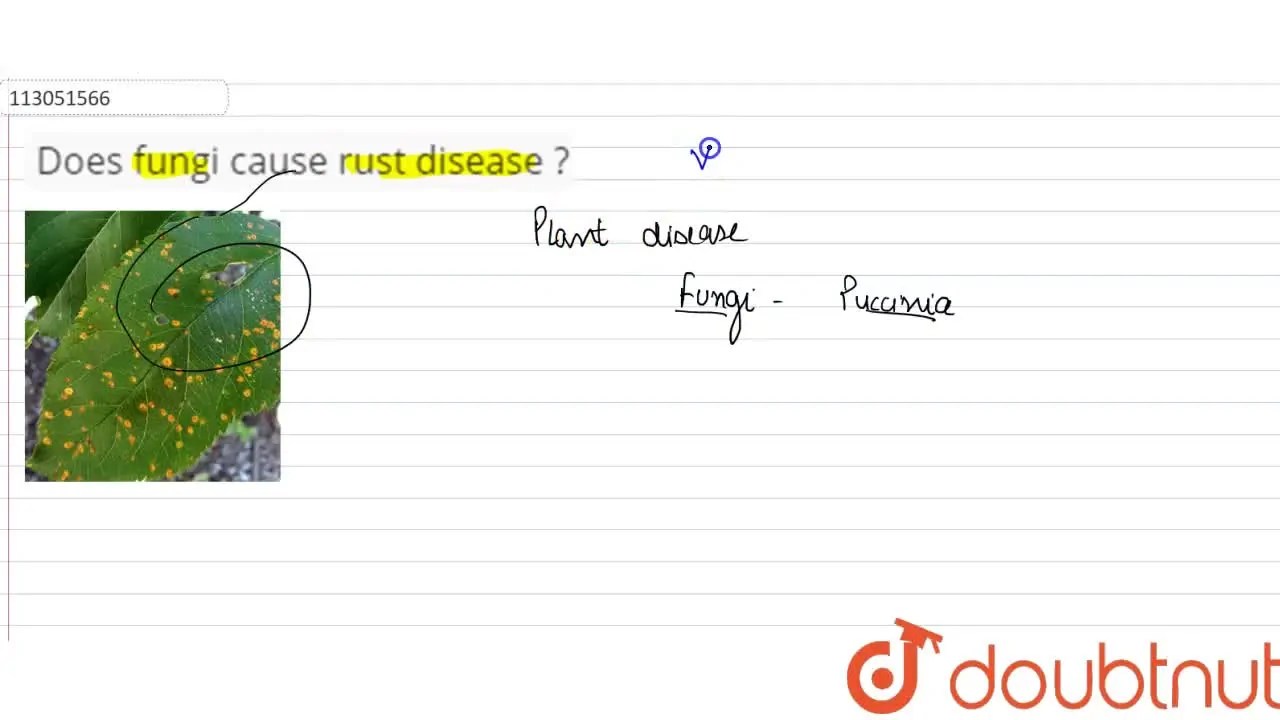 113051566
Does fungi cause rust disease ?
Plant disease
Fungi - Puccinia
doubtnut